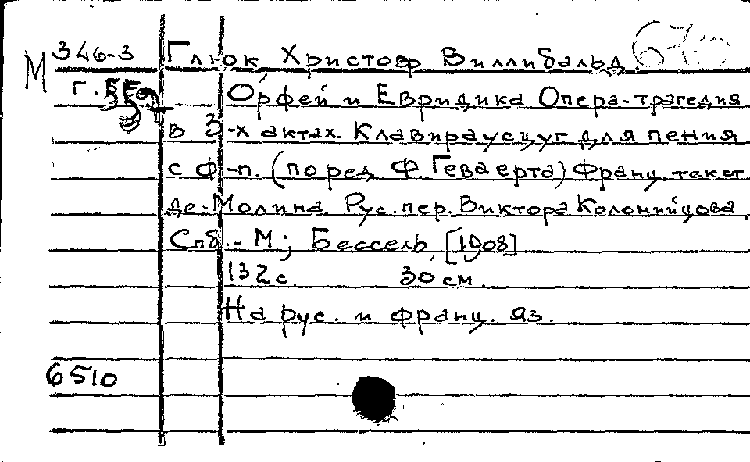 М 346-3 Глюк, Христоф Виллибальд
Орфей и Евридика Опера-трагедия
в 3-х актах. Клавираусцуг для пения
с ф-п. (по ред. Ф. Геваерта) Франц. текст
де-Молина. Рус. пер. Виктора Коломийцова.
Спб. - М; Бессель, [1908]
132 с. 30 см.
На рус. и франц. яз.
6510